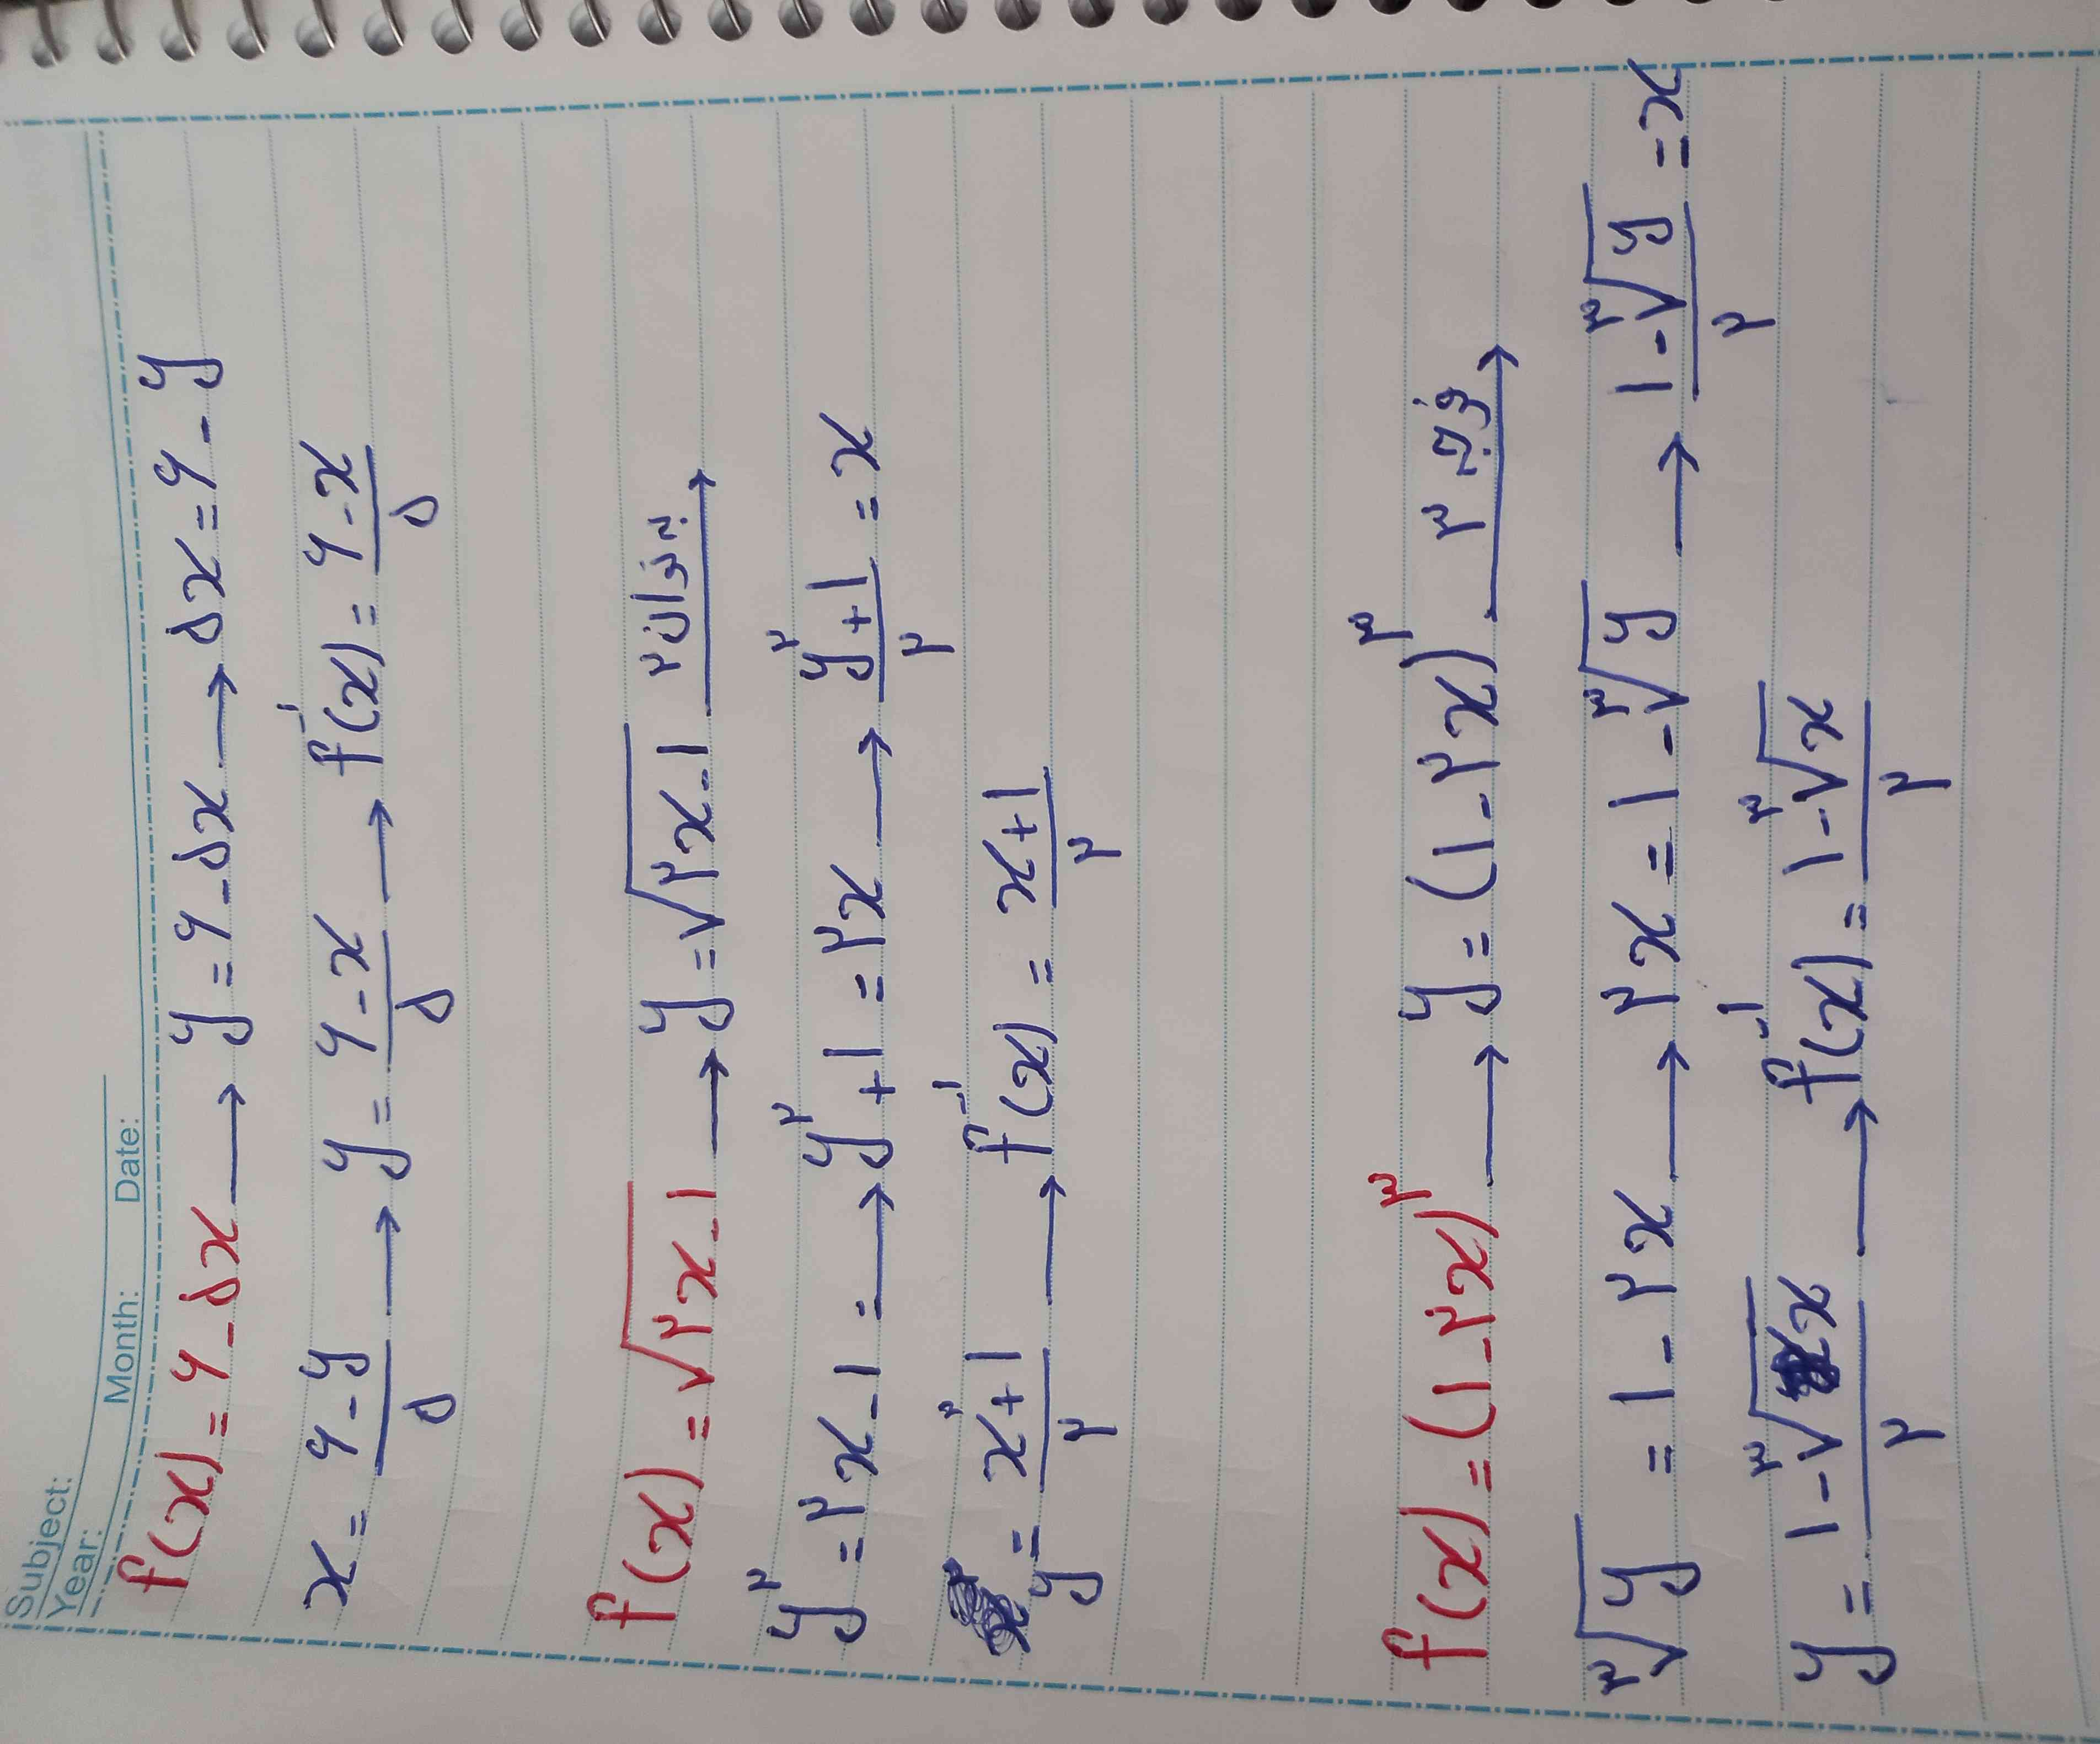 Subject:
Year: Month: Date:
f(x) = ۶ - ۵x → y = ۶ - ۵x → ۵x = ۶ - y
x = (۶ - y)/۵ → y = (۶ - x)/۵ → f⁻¹(x) = (۶ - x)/۵
f(x) = √(۲x - ۱) → y = √(۲x - ۱) به توان ۲ →
y² = ۲x - ۱ → y² + ۱ = ۲x → (y² + ۱)/۲ = x
y = (x² + ۱)/۲ → f⁻¹(x) = (x + ۱)/۲
f(x) = (۱ - ۲x)³ → y = (۱ - ۲x)³ فرجه ۳ →
∛y = ۱ - ۲x → ۲x = ۱ - ∛y → (۱ - ∛y)/۲ = x
y = (۱ - ∛x)/۲ → f⁻¹(x) = (۱ - ∛x)/۲